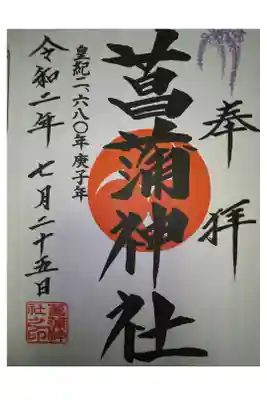 奉拝
菖蒲神社
皇紀二、六八〇年 庚子年
令和二年 七月二十五日
菖蒲神
社之印